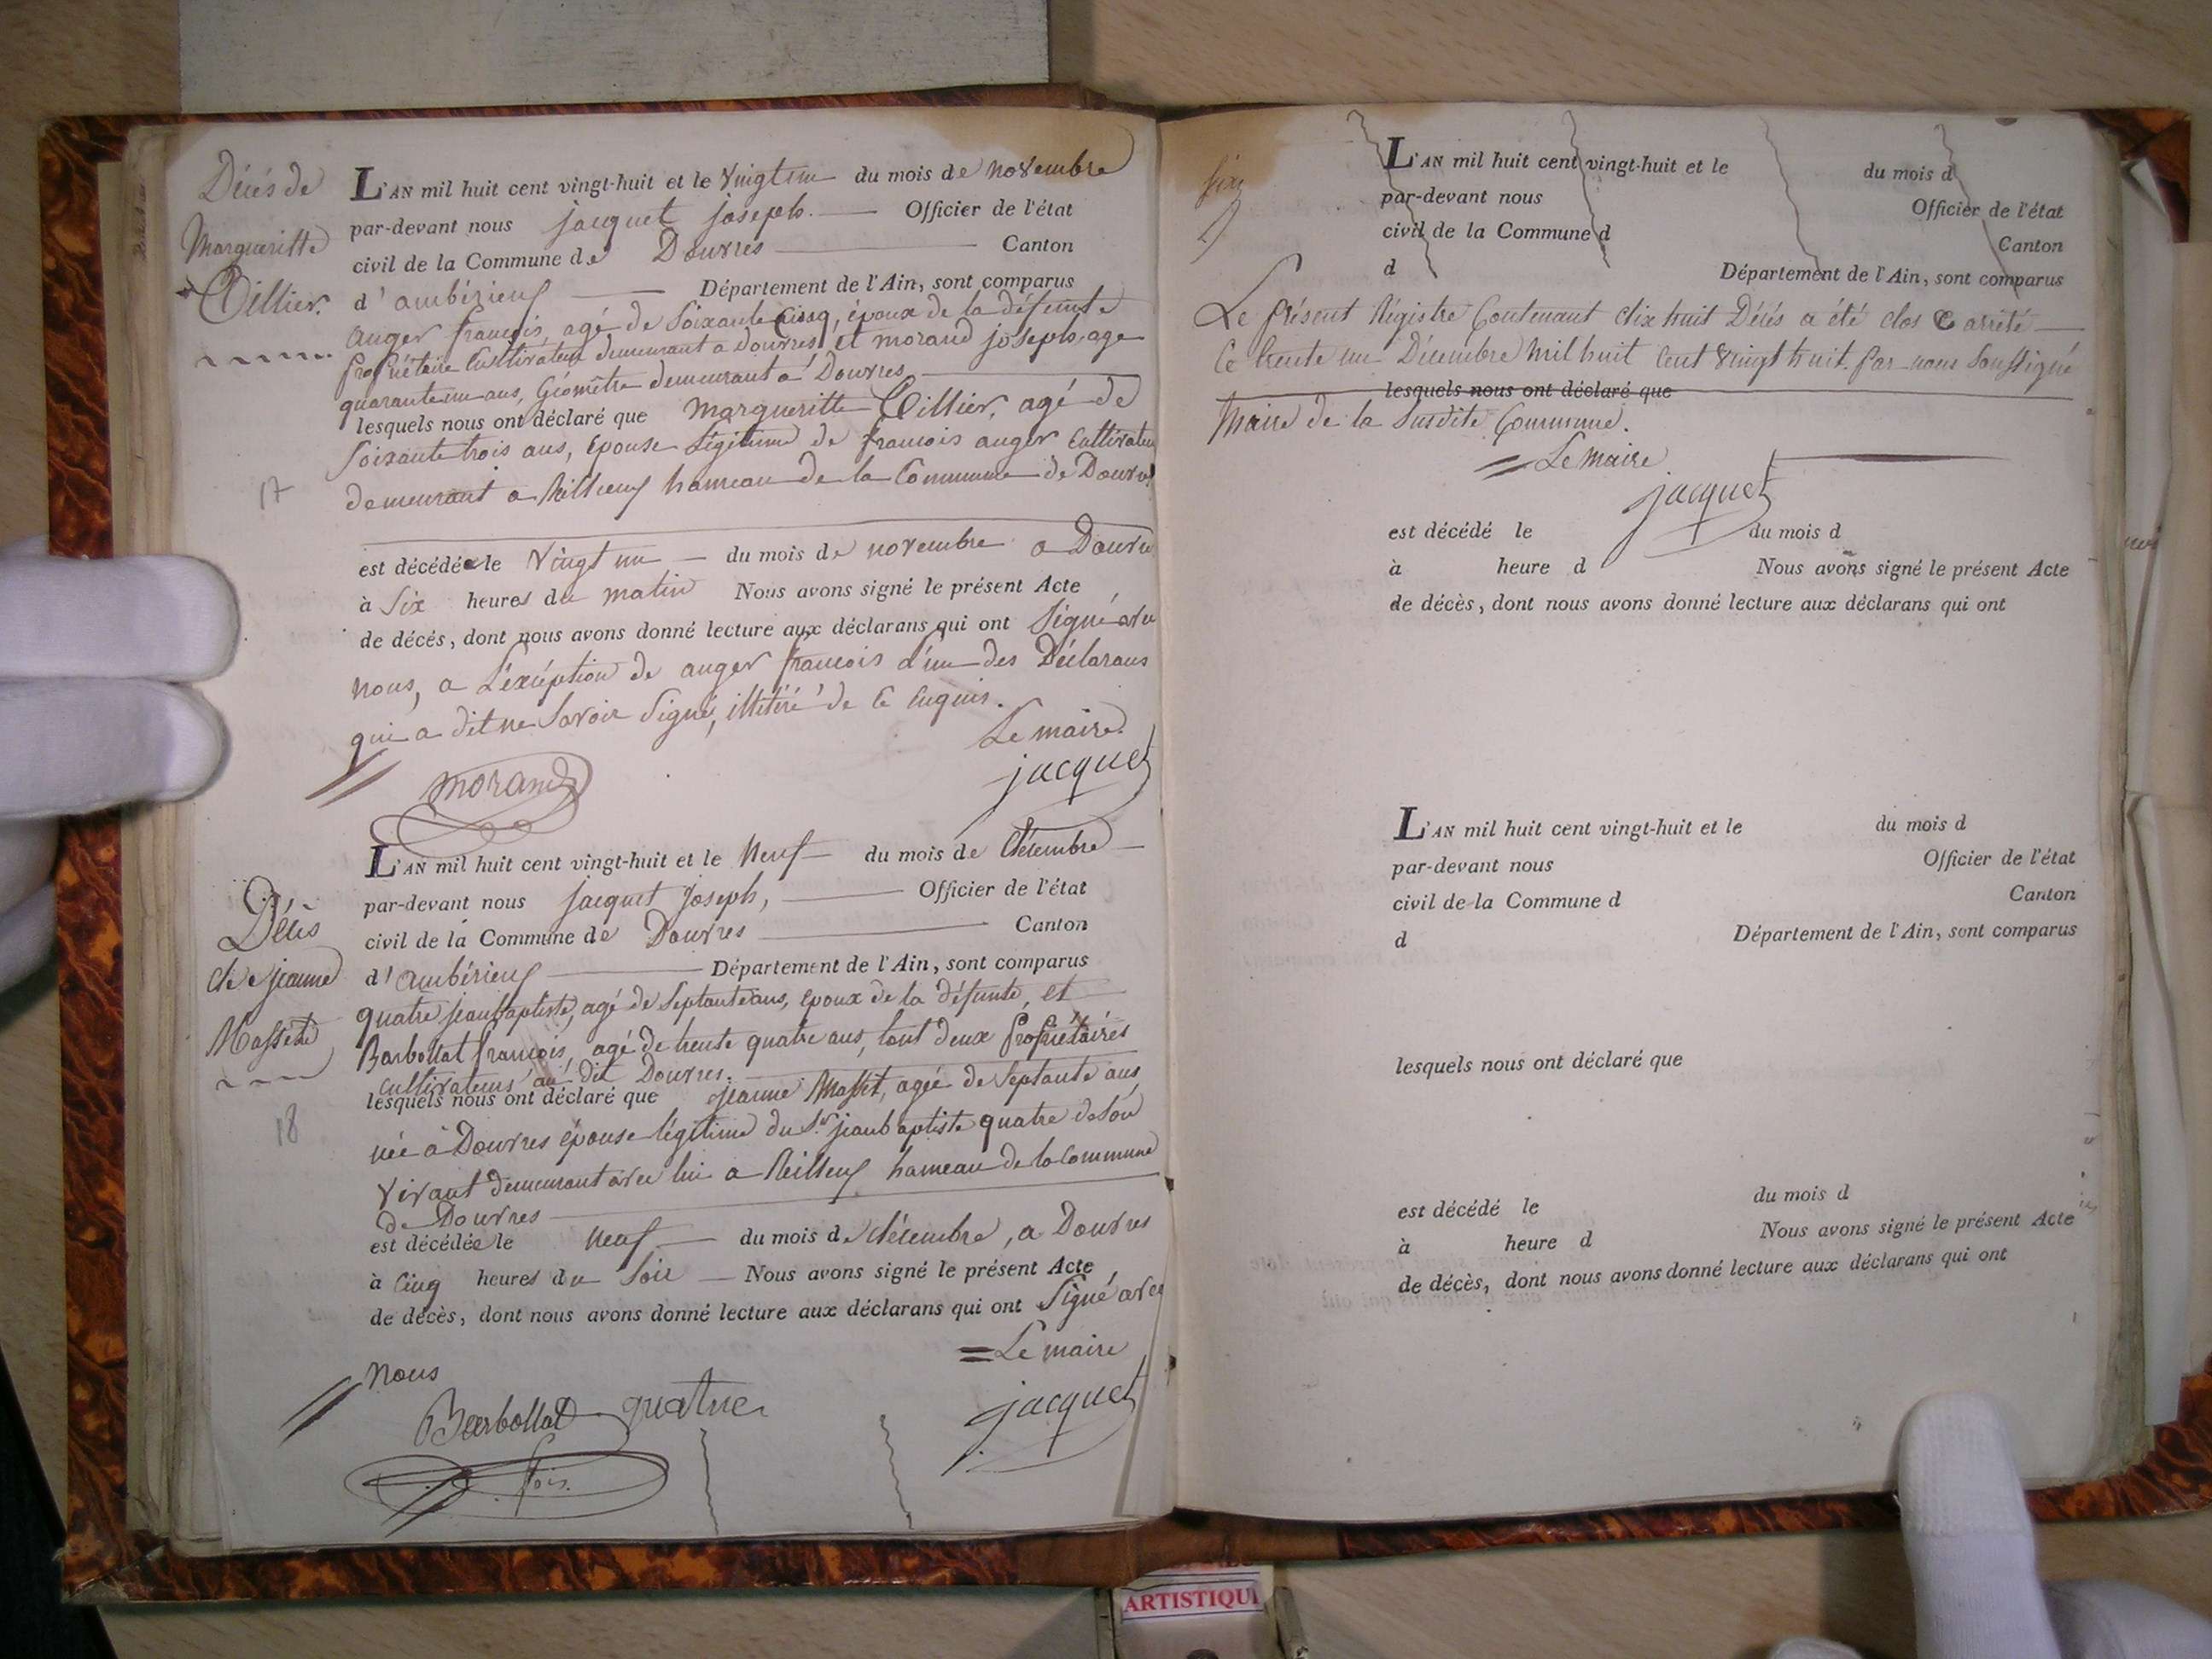 Décés de
Margueritte
Tillier.
17
L'AN mil huit cent vingt-huit et le vingt un du mois de novembre
par-devant nous jacquet joseph. Officier de l'état
civil de la Commune de Douvres Canton
d'ambérieux Département de l'Ain, sont comparus
auger françois, agé de soixante cinq, époux de la défunte
propriétaire cultivateur demeurant a Douvres, et morand joseph age
quarante un ans, Géomêtre demeurant a Douvres
lesquels nous ont déclaré que Margueritte Tillier, agé de
soixante trois ans, épouse légitime de francois auger cultivateur
demeurant a hameau de la Commune de Douvres
est décédée le vingt un du mois de novembre a Douvres
à six heures du matin Nous avons signé le présent Acte
de décés, dont nous avons donné lecture aux déclarans qui ont signé avec
nous, a l'exéption de auger francois l'un des Déclarans
qui a dit ne savoir signé, de ce enquis.
Le maire
morand jacquet
Décès
de jeanne
Massit
18
L'AN mil huit cent vingt-huit et le neuf du mois de décembre
par-devant nous jacquet Joseph, Officier de l'état
civil de la Commune de Douvres Canton
d'ambérieux Département de l'Ain, sont comparus
quatre jeanbaptiste, agé de septante ans, epoux de la défunte, et
Barbollat françois, agé de trente quatre ans, tout deux propriétaires
cultivateurs au dit Douvres.
lesquels nous ont déclaré que jeanne Massit, agée de septante ans
née à Douvres épouse légitime du Sr. jeanbaptiste quatre de son
vivant demeurant avec lui a hameau de la commune
de Douvres
est décédée le neuf du mois de décembre, a Douvres
à cinq heures du soir Nous avons signé le présent Acte
de décès, dont nous avons donné lecture aux déclarans qui ont signé avec
nous
Le maire
Barbollat quatre jacquet
fois.
L'AN mil huit cent vingt-huit et le du mois d
par-devant nous Officier de l'état
civil de la Commune d Canton
d Département de l'Ain, sont comparus
Le présent Régistre Contenant dix huit Décés a été clos & arrêté
ce trente un Décembre mil huit cent vingt huit. par nous soussigné
lesquels nous ont déclaré que
Maire de la susdite Commune.
Le Maire
jacquet
est décédé le du mois d
à heure d Nous avons signé le présent Acte
de décès, dont nous avons donné lecture aux déclarans qui ont
L'AN mil huit cent vingt-huit et le du mois d
par-devant nous Officier de l'état
civil de la Commune d Canton
d Département de l'Ain, sont comparus
lesquels nous ont déclaré que
est décédé le du mois d
à heure d Nous avons signé le présent Acte
de décès, dont nous avons donné lecture aux déclarans qui ont
ARTISTIQU